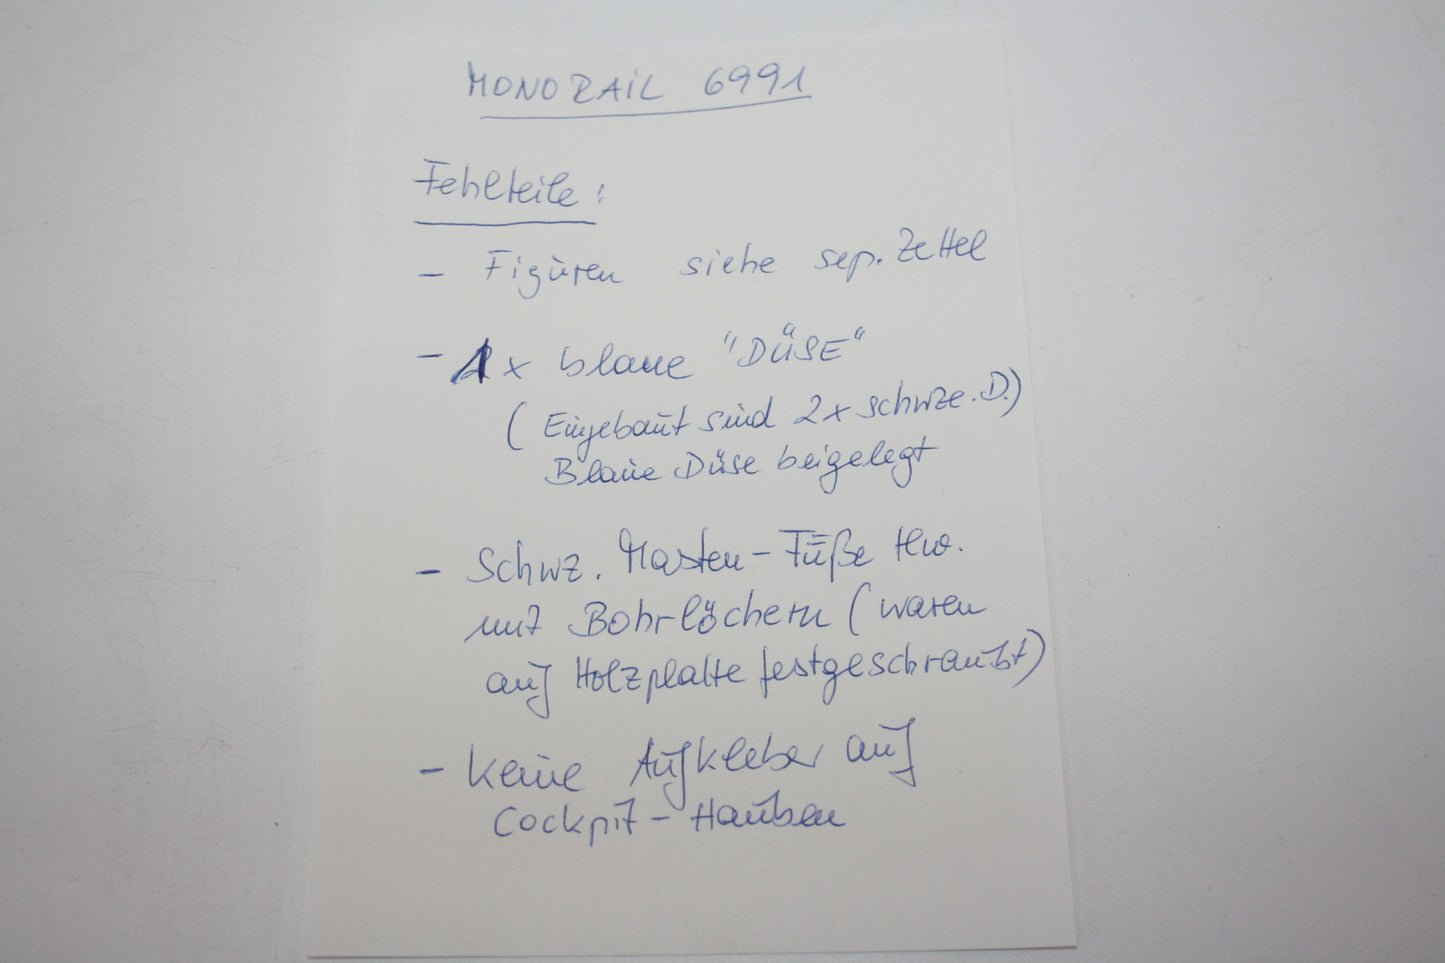 MONORAIL 6991
Fehlteile:
- Figuren siehe sep. Zettel
- 1 x blaue "DÜSE"
(Eingebaut sind 2x schwze. D.)
Blaue Düse beigelegt
- Schwz. Masten-Füße tlw.
mit Bohrlöchern (waren
auf Holzplatte festgeschraubt)
- Keine Aufkleber auf
Cockpit-Hauben